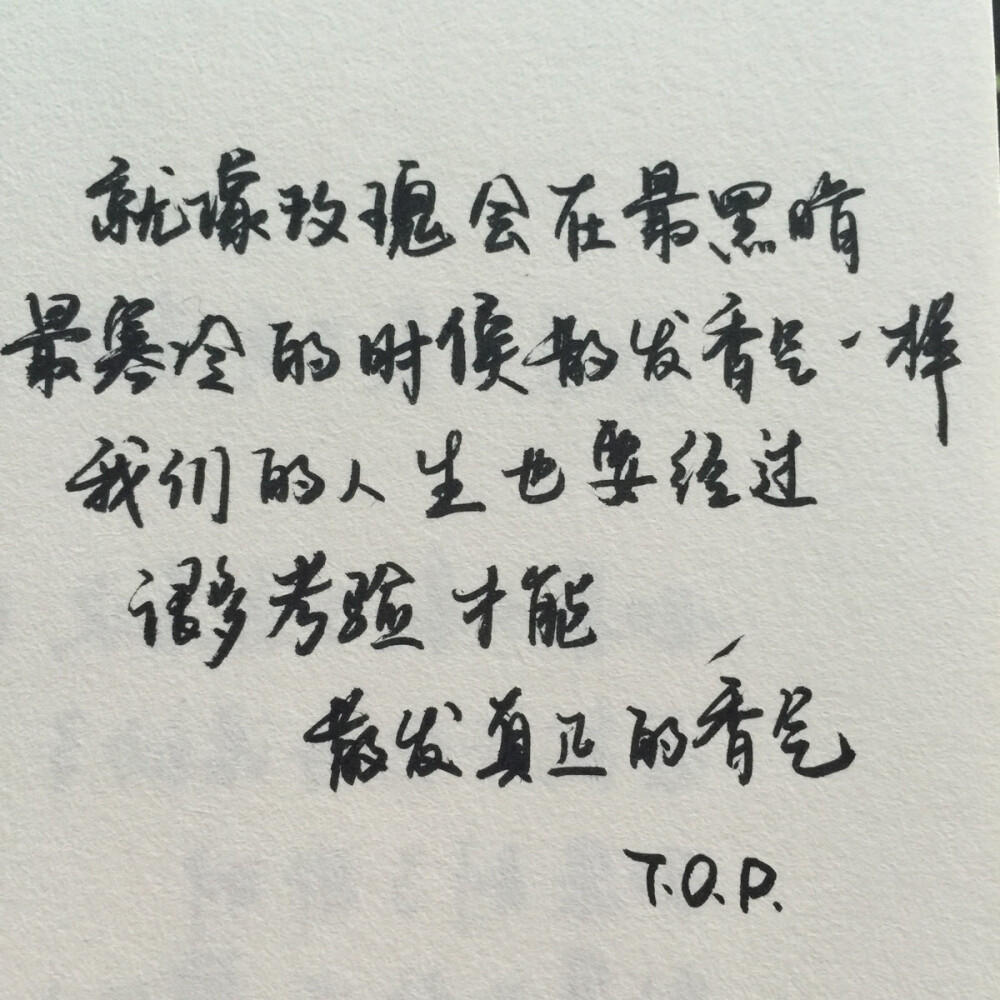 就像玫瑰会在最黑暗
最寒冷的时候散发香气一样
我们的人生也要经过
很多考验才能
散发真正的香气
T.O.P.